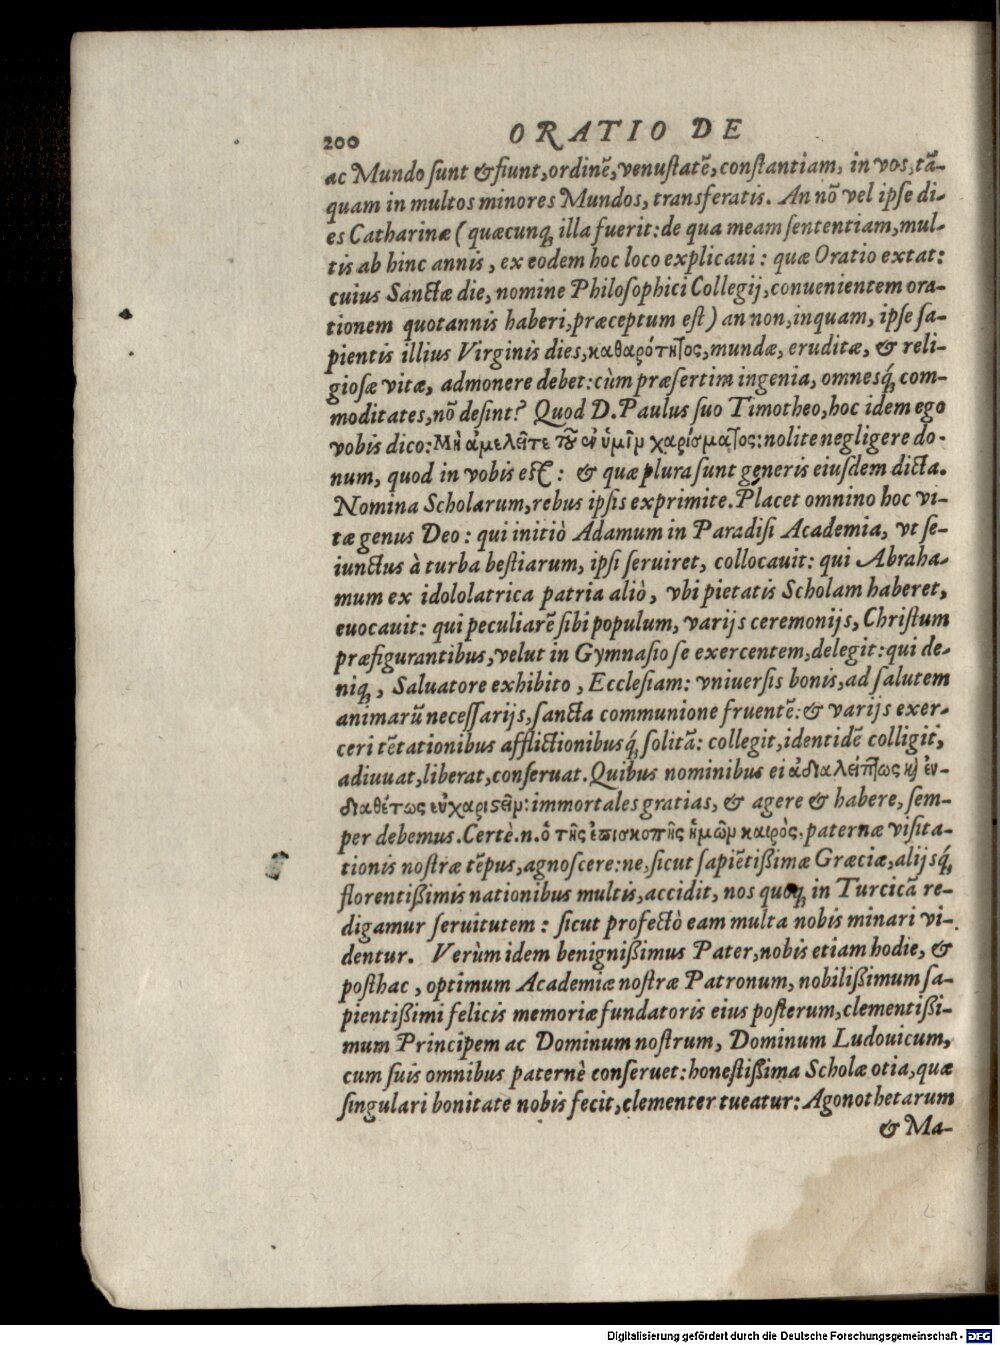 200 ORATIO DE
ac Mundo sunt & fiunt, ordinē, venustatē, constantiam, in vos, tã-
quam in multos minores Mundos, transferatis. An nõ vel ipse di-
es Catharinæ (quæcunq; illa fuerit: de qua meam sententiam, mul-
tis ab hinc annis, ex eodem hoc loco explicaui: quæ Oratio extat:
cuius Sanctæ die, nomine Philosophici Collegij, conuenientem ora-
tionem quotannis haberi, præceptum est) an non, inquam, ipse sa-
pientis illius Virginis dies, καθαρότητος, mundæ, eruditæ, & reli-
giosæ vitæ, admonere debet: cùm præsertim ingenia, omnesq́; com-
moditates, nõ desint? Quod D. Paulus suo Timotheo, hoc idem ego
vobis dico: Μὴ ἀμελεῖτε τοῦ ἐν ὑμῖν χαρίσματος: nolite negligere do-
num, quod in vobis est: & quæ plura sunt generis eiusdem dicta.
Nomina Scholarum, rebus ipsis exprimite. Placet omnino hoc vi-
tæ genus Deo: qui initiò Adamum in Paradisi Academia, vt se-
iunctus à turba bestiarum, ipsi seruiret, collocauit: qui Abraha-
mum ex idololatrica patria aliò, vbi pietatis Scholam haberet,
euocauit: qui peculiarē sibi populum, varijs ceremonijs, Christum
præfigurantibus, velut in Gymnasio se exercentem, delegit: qui de-
niq;, Saluatore exhibito, Ecclesiam: vniuersis bonis, ad salutem
animarũ necessarijs, sancta communione fruentē: & varijs exer-
ceri tētationibus afflictionibusq́; solitã: collegit, identidē colligit,
adiuuat, liberat, conseruat. Quibus nominibus ei ἀδιαλείπτως καὶ ἐν-
διαθέτως εὐχαριστεῖν: immortales gratias, & agere & habere, sem-
per debemus. Certè.n. ὁ τῆς ἐπισκοπῆς ἡμῶν καιρὸς, paternæ visita-
tionis nostræ tēpus, agnoscere: ne, sicut sapiētißimæ Græciæ, alijsq́;
florentißimis nationibus multis, accidit, nos quoq; in Turcicã re-
digamur seruitutem: sicut profectò eam multa nobis minari vi-
dentur. Verùm idem benignißimus Pater, nobis etiam hodie, &
posthac, optimum Academiæ nostræ Patronum, nobilißimum sa-
pientißimi felicis memoriæ fundatoris eius posterum, clementißi-
mum Principem ac Dominum nostrum, Dominum Ludouicum,
cum suis omnibus paternè conseruet: honestißima Scholæ otia, quæ
singulari bonitate nobis fecit, clementer tueatur: Agonothetarum
& Ma-
Digitalisierung gefördert durch die Deutsche Forschungsgemeinschaft - DFG